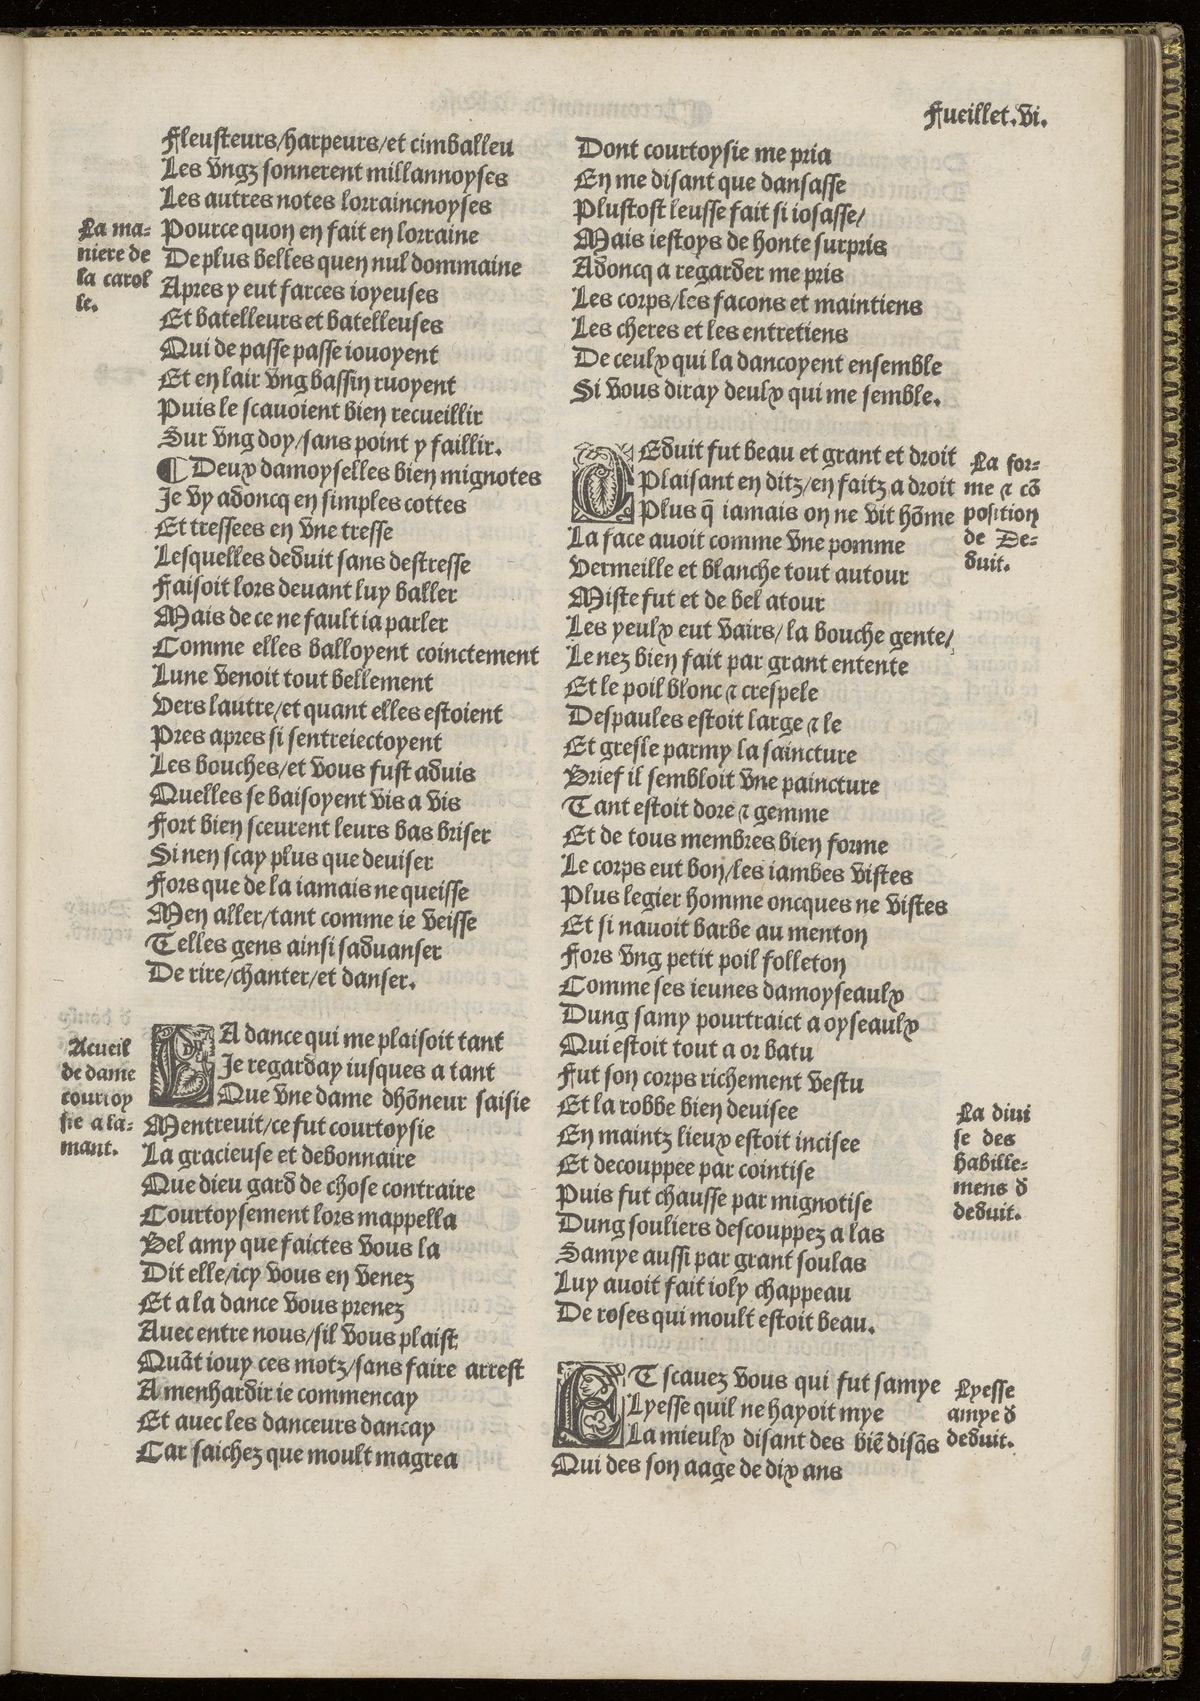 Fueillet.vi.
Fleusteurs/harpeurs/et cimballeu
Les vngz sonnerent millannoyses
Les autres notes lorraincnoyses
Pource quon en fait en lorraine
De plus belles quen nul dommaine
Apres y eut farces ioyeuses
Et batelleurs et batelleuses
Qui de passe passe iouoyent
Et en lair vng bassin ruoyent
Puis le scauoient bien recueillir
Sur vng doy/sans point y faillir.
La ma-
niere de
la carol
le.
¶ Deux damoyselles bien mignotes
Je vy adoncq en simples cottes
Et tressees en vne tresse
Lesquelles deduit sans destresse
Faisoit lors deuant luy baller
Mais de ce ne fault ia parler
Comme elles balloyent coinctement
Lune venoit tout bellement
Vers lautre/et quant elles estoient
Pres apres si sentreiectoyent
Les bouches/et vous fust aduis
Quelles se baisoyent vis a vis
Fort bien sceurent leurs bas briser
Si nen scay plus que deuiser
Fors que de la iamais ne queisse
Men aller/tant comme ie veisse
Telles gens ainsi saduanser
De rire/chanter/et danser.
LA dance qui me plaisoit tant
Je regarday iusques a tant
Que vne dame dhõneur saisie
Mentreuit/ce fut courtoysie
La gracieuse et debonnaire
Que dieu gard de chose contraire
Courtoysement lors mappella
Bel amy que faictes vous la
Dit elle/icy vous en venez
Et a la dance vous prenez
Auec entre nous/sil vous plaist
Quãt iouy ces motz/sans faire arrest
A menhardir ie commencay
Et auec les danceurs dancay
Car saichez que moult magrea
Acueil
de dame
courtoy
sie a la-
mant.
Dont courtoysie me pria
En me disant que dansasse
Plustost leusse fait si iosasse/
Mais iestoys de honte surpris
Adoncq a regarder me pris
Les corps/les facons et maintiens
Les cheres et les entretiens
De ceulx qui la dancoyent ensemble
Si vous diray deulx qui me semble.
DEduit fut beau et grant et droit
Plaisant en ditz/en faitz a droit
Plus q̃ iamais on ne vit hõme
La face auoit comme vne pomme
Vermeille et blanche tout autour
Miste fut et de bel atour
Les yeulx eut vairs/la bouche gente/
Le nez bien fait par grant entente
Et le poil blonc ⁊ crespele
Despaules estoit large ⁊ le
Et gresle parmy la saincture
Brief il sembloit vne paincture
Tant estoit dore ⁊ gemme
Et de tous membres bien forme
Le corps eut bon/les iambes vistes
Plus legier homme oncques ne vistes
Et si nauoit barbe au menton
Fors vng petit poil folleton
Comme ses ieunes damoyseaulx
Dung samy pourtraict a oyseaulx
Qui estoit tout a or batu
Fut son corps richement vestu
Et la robbe bien deuisee
En maintz lieux estoit incisee
Et decouppee par cointise
Puis fut chausse par mignotise
Dung souliers descouppez a las
Samye aussi par grant soulas
Luy auoit fait ioly chappeau
De roses qui moult estoit beau.
La for-
me ⁊ cõ
position
de De-
duit.
La diui
se des
habille-
mens d
deduit.
ET scauez vous qui fut samye
Lyesse quil ne hayoit mye
La mieulx disant des biẽ disãs
Qui des son aage de dix ans
Lyesse
amye d
deduit.
9